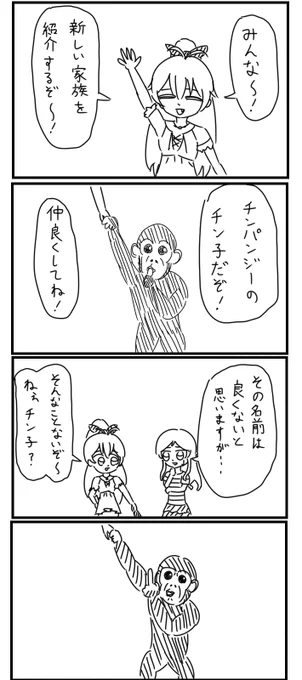 みんな〜!
新しい家族を
紹介するぞ〜!
チンパンジーの
チン子だぞ!
仲良くしてね!
その名前は
良くないと
思いますが…
そんなことないぞ〜
ねぇチン子?